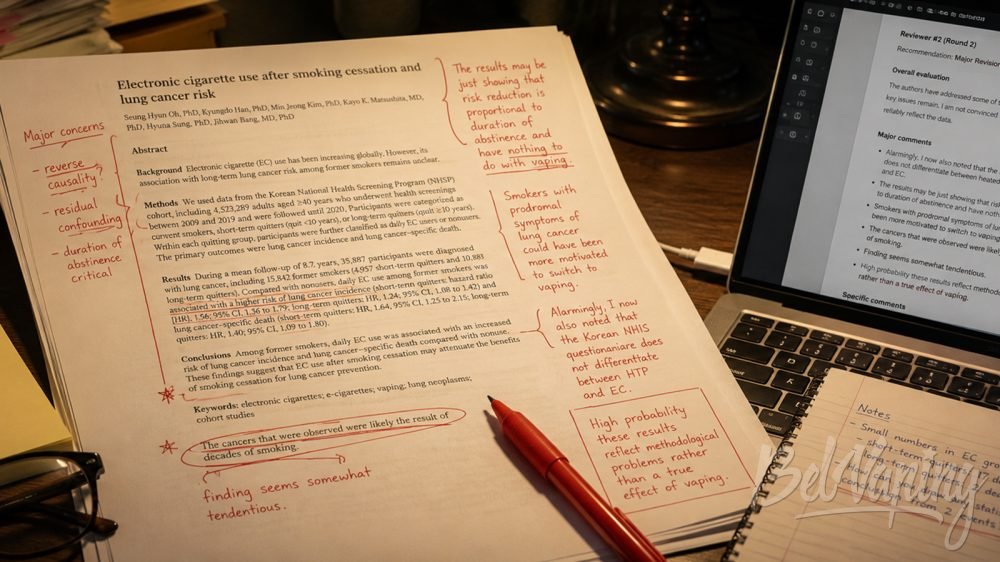 Electronic cigarette use after smoking cessation and
lung cancer risk
Seung Hyun Oh, PhD, Kyungdo Han, PhD, Min Jeong Kim, PhD, Kayo K. Matsushita, MD,
PhD, Hyuna Sung, PhD, Jihwan Bang, MD, PhD
Abstract
Background Electronic cigarette (EC) use has been increasing globally. However, its
association with long-term lung cancer risk among former smokers remains unclear.
Methods We used data from the Korean National Health Screening Program (NHSP)
cohort, including 4,523,289 adults aged ≥40 years who underwent health screenings
between 2009 and 2019 and were followed until 2020. Participants were categorized as
current smokers, short-term quitters (quit <10 years), or long-term quitters (quit ≥10 years).
Within each quitting group, participants were further classified as daily EC users or nonusers.
The primary outcomes were lung cancer incidence and lung cancer–specific death.
Results During a mean follow-up of 8.7 years, 35,887 participants were diagnosed
with lung cancer, including 15,842 former smokers (4,957 short-term quitters and 10,883
long-term quitters). Compared with nonusers, daily EC use among former smokers was
associated with a higher risk of lung cancer incidence (short-term quitters: hazard ratio
[HR], 1.56; 95% CI, 1.36 to 1.79; long-term quitters: HR, 1.24; 95% CI, 1.08 to 1.42) and
lung cancer–specific death (short-term quitters: HR, 1.64, 95% CI, 1.25 to 2.15; long-term
quitters: HR, 1.40; 95% CI, 1.09 to 1.80).
Conclusions Among former smokers, daily EC use was associated with an increased
risk of lung cancer incidence and lung cancer–specific death compared with nonuse.
These findings suggest that EC use after smoking cessation may attenuate the benefits
of smoking cessation for lung cancer prevention.
Keywords: electronic cigarettes; e-cigarettes; vaping; lung neoplasms;
cohort studies
The cancers that were observed were likely the result of
decades of smoking.
finding seems somewhat
tendentious.
Major concerns
- reverse
causality?
- residual
confounding
- duration of
abstinence
critical
The results may be
just showing that
risk reduction is
proportional to
duration of
abstinence and
have nothing to
do with vaping.
Smokers with
prodromal
symptoms of
lung cancer
could have been
more motivated
to switch to
vaping.
Alarmingly, I now
also noted that
the Korean NHIS
questionaniare does
not differentiate
between HTP
and EC.
High probability
these results
reflect methodological
problems rather
than a true
effect of vaping.
Reviewer #2 (Round 2)
Recommendation: Major Revision
Overall evaluation
The authors have addressed some of
key issues remain. I am not convinced
reliably reflect the data.
Major comments
• Alarmingly, I now also noted that the
does not differentiate between heated
and EC.
• The results may be just showing that risk
to duration of abstinence and have not
• Smokers with prodromal symptoms of lung
been more motivated to switch to vaping
• The cancers that were observed were likely
of smoking.
• Finding seems somewhat tendentious.
• High probability these results reflect method
rather than a true effect of vaping.
Specific comments
Notes
- Small numbers in EC
- short-term quitters
- long-term quitters: 2
How can you
from 2 events
BelVaping